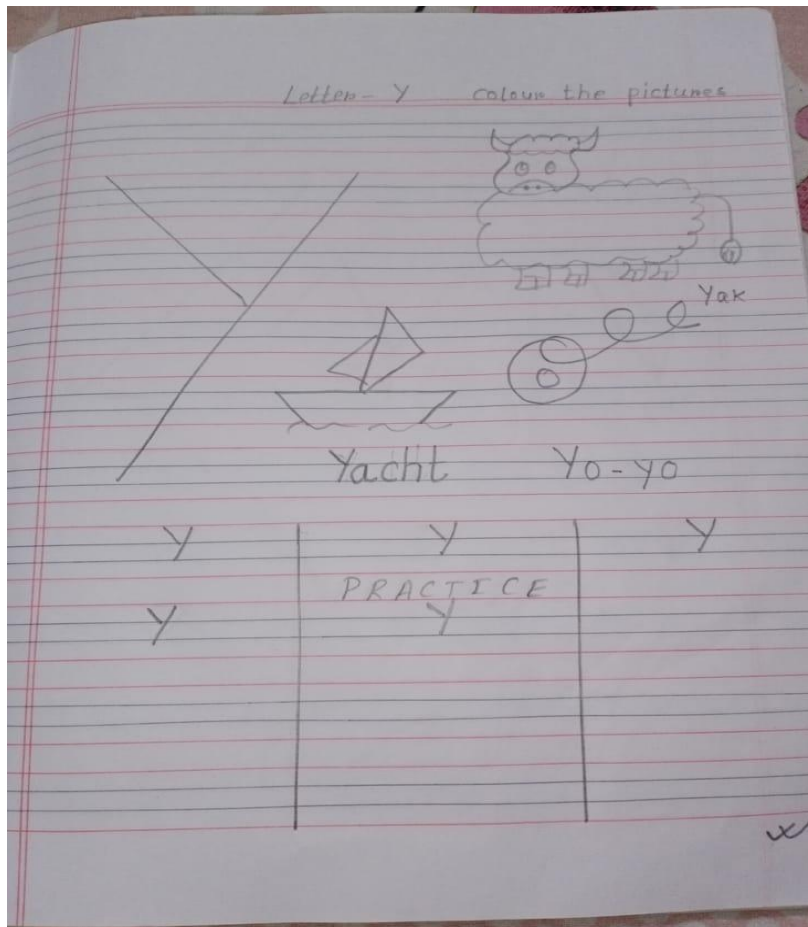 Letter - Y colour the pictures
Y
Yak
Yacht Yo-yo
Y Y Y
PRACTICE
Y Y